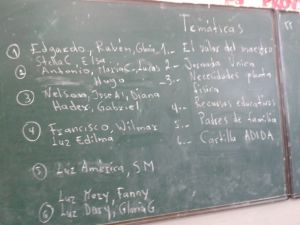 ① Edgardo, Rubén, Gloria
Stella C, Elsa
② Antonio, María C, Lucas
Hugo
③ Nelson, José A, Diana
Hader, Gabriel
④ Francisco, Wilmar
Luz Edilma
⑤ Luz América, S M
Luz Mery, Fanny
⑥ Luz Dary, Gloria G
Temáticas
1.- El valor del maestro
2.- Jornada Única
3.- Necesidades planta
física
4.- Recursos educativos
5.- Padres de familia
6.- Cartilla ADIDA